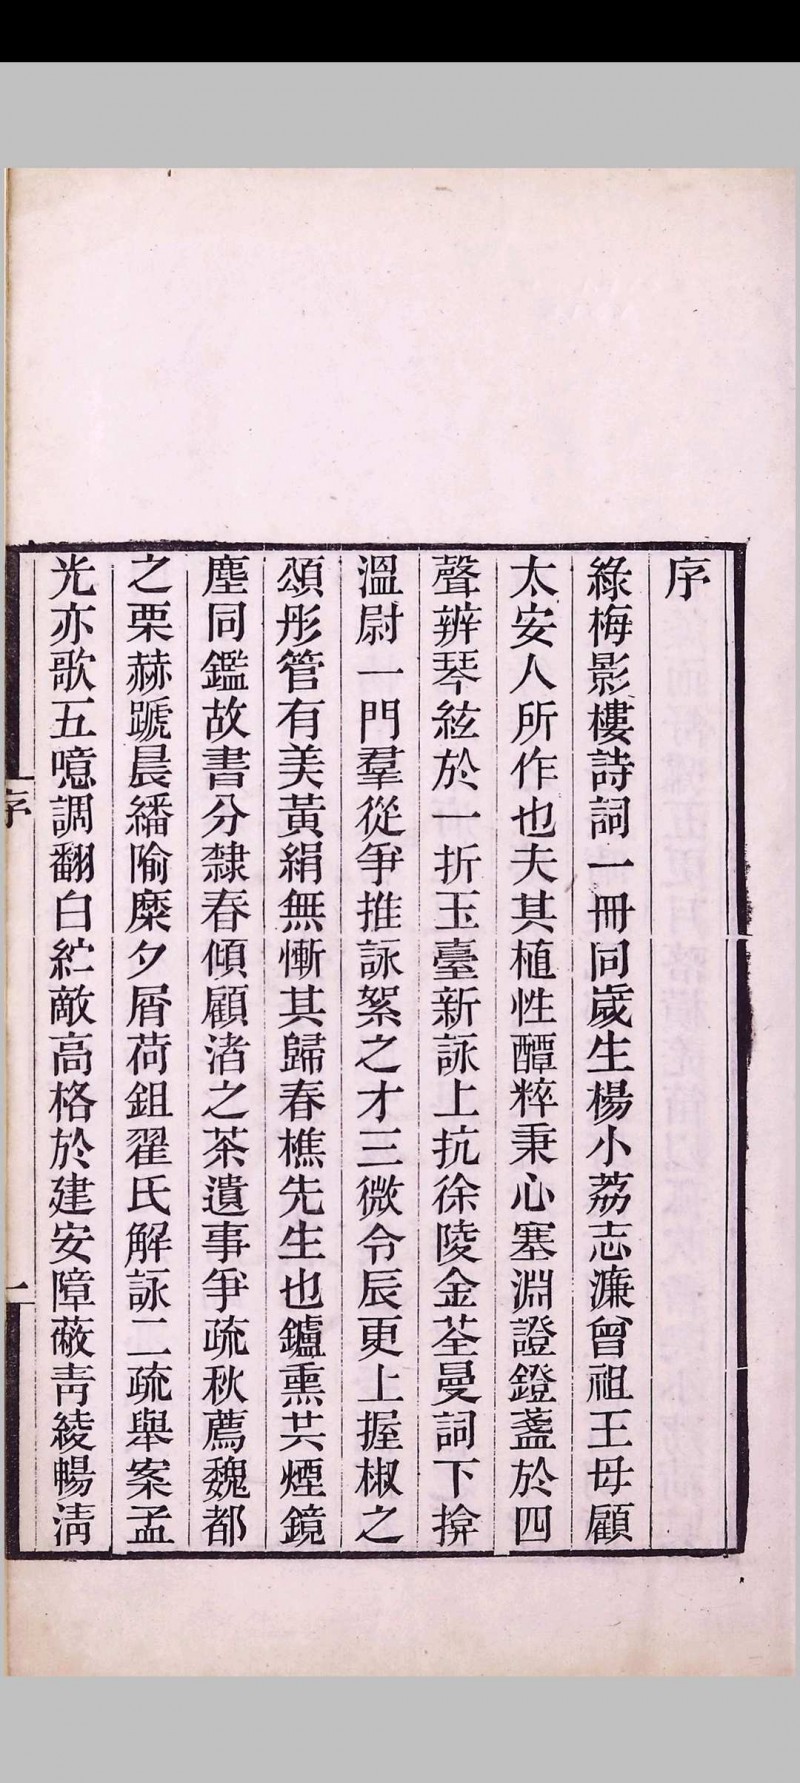 序
綠梅影樓詩詞一冊同歲生楊小荔志濂曾祖王母顧
太安人所作也夫其植性醰粹秉心塞淵證鐙盞於四
聲辨琴絃於一折玉臺新詠上抗徐陵金荃曼詞下揜
溫尉一門羣從爭推詠絮之才三微令辰更上握椒之
頌彤管有美黃絹無慚其歸春樵先生也鑪熏共煙鏡
塵同鑑故書分隸春傾顧渚之茶遺事爭疏秋薦魏都
之栗赫蹏晨繙隃糜夕屑荷鉏翟氏解詠二疏舉案孟
光亦歌五噫調翻白紵敵高格於建安障蔽靑綾暢淸
序
一